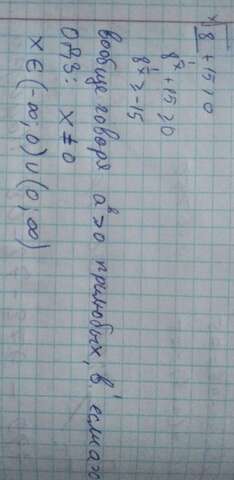 ˣ√8 + 15 ≥ 0
8^(1/x) + 15 ≥ 0
8^(1/x) ≥ -15
вообще говоря a^b > 0 при любых b, если a>0
ОДЗ: x ≠ 0
x ∈ (-∞; 0) ∪ (0; ∞)